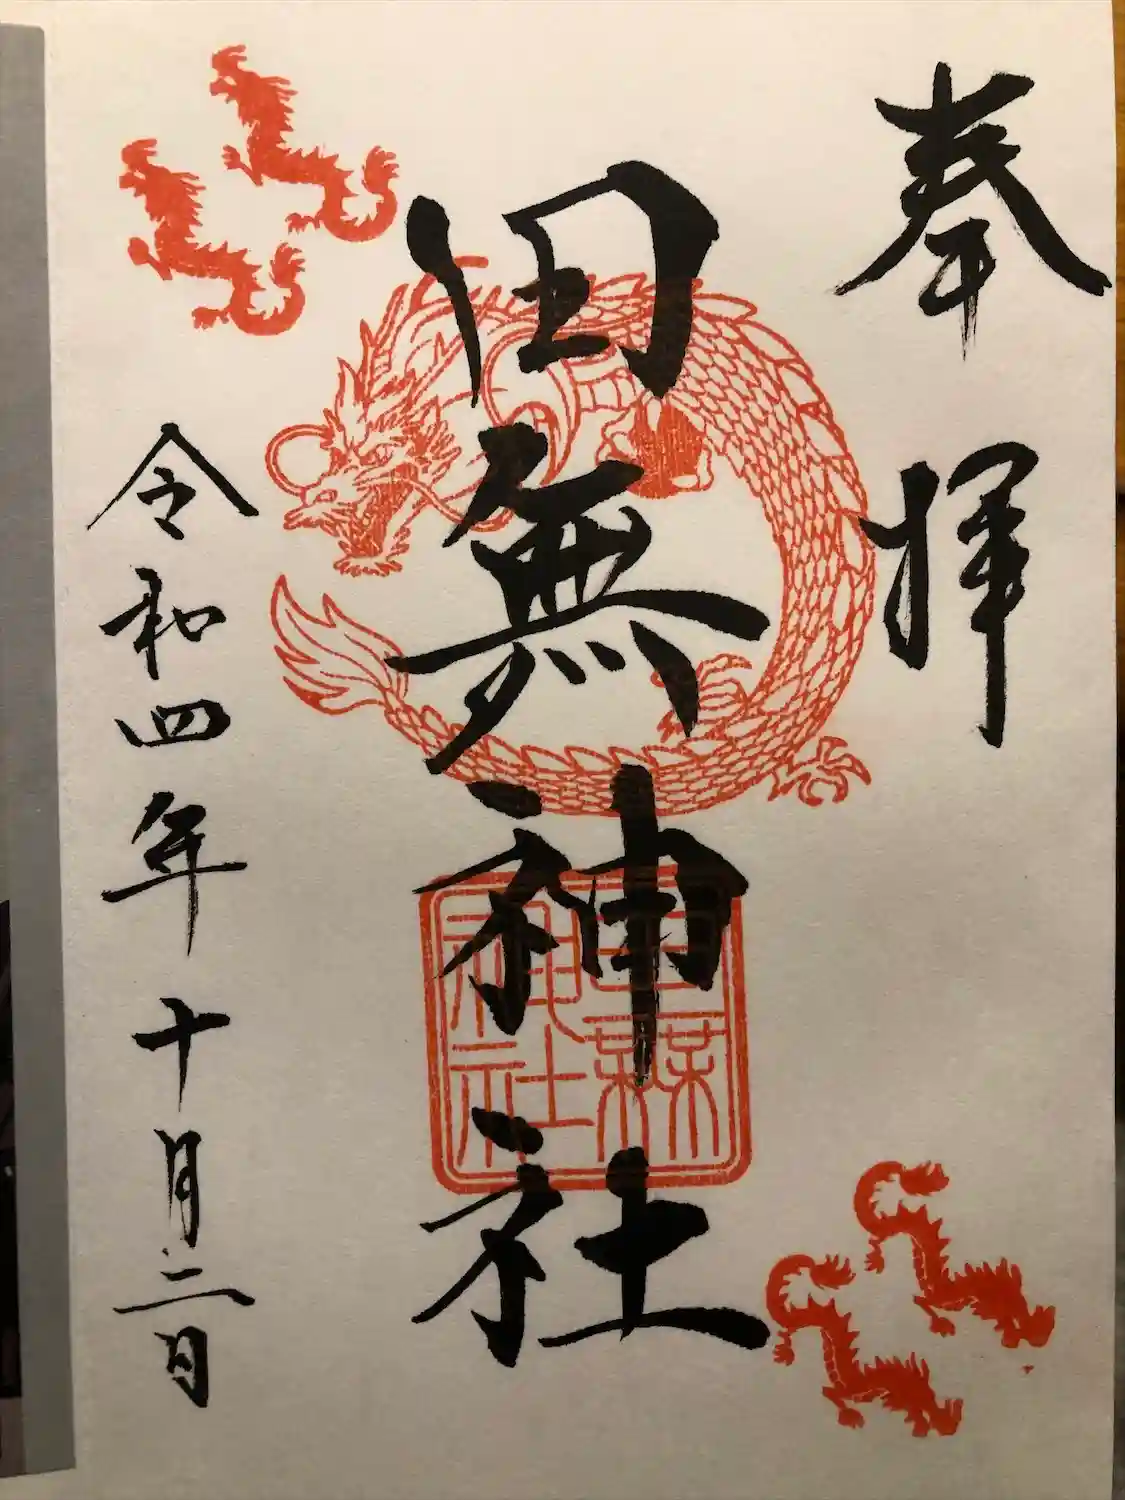 奉拝
田無神社
令和四年十月二日
田無神社